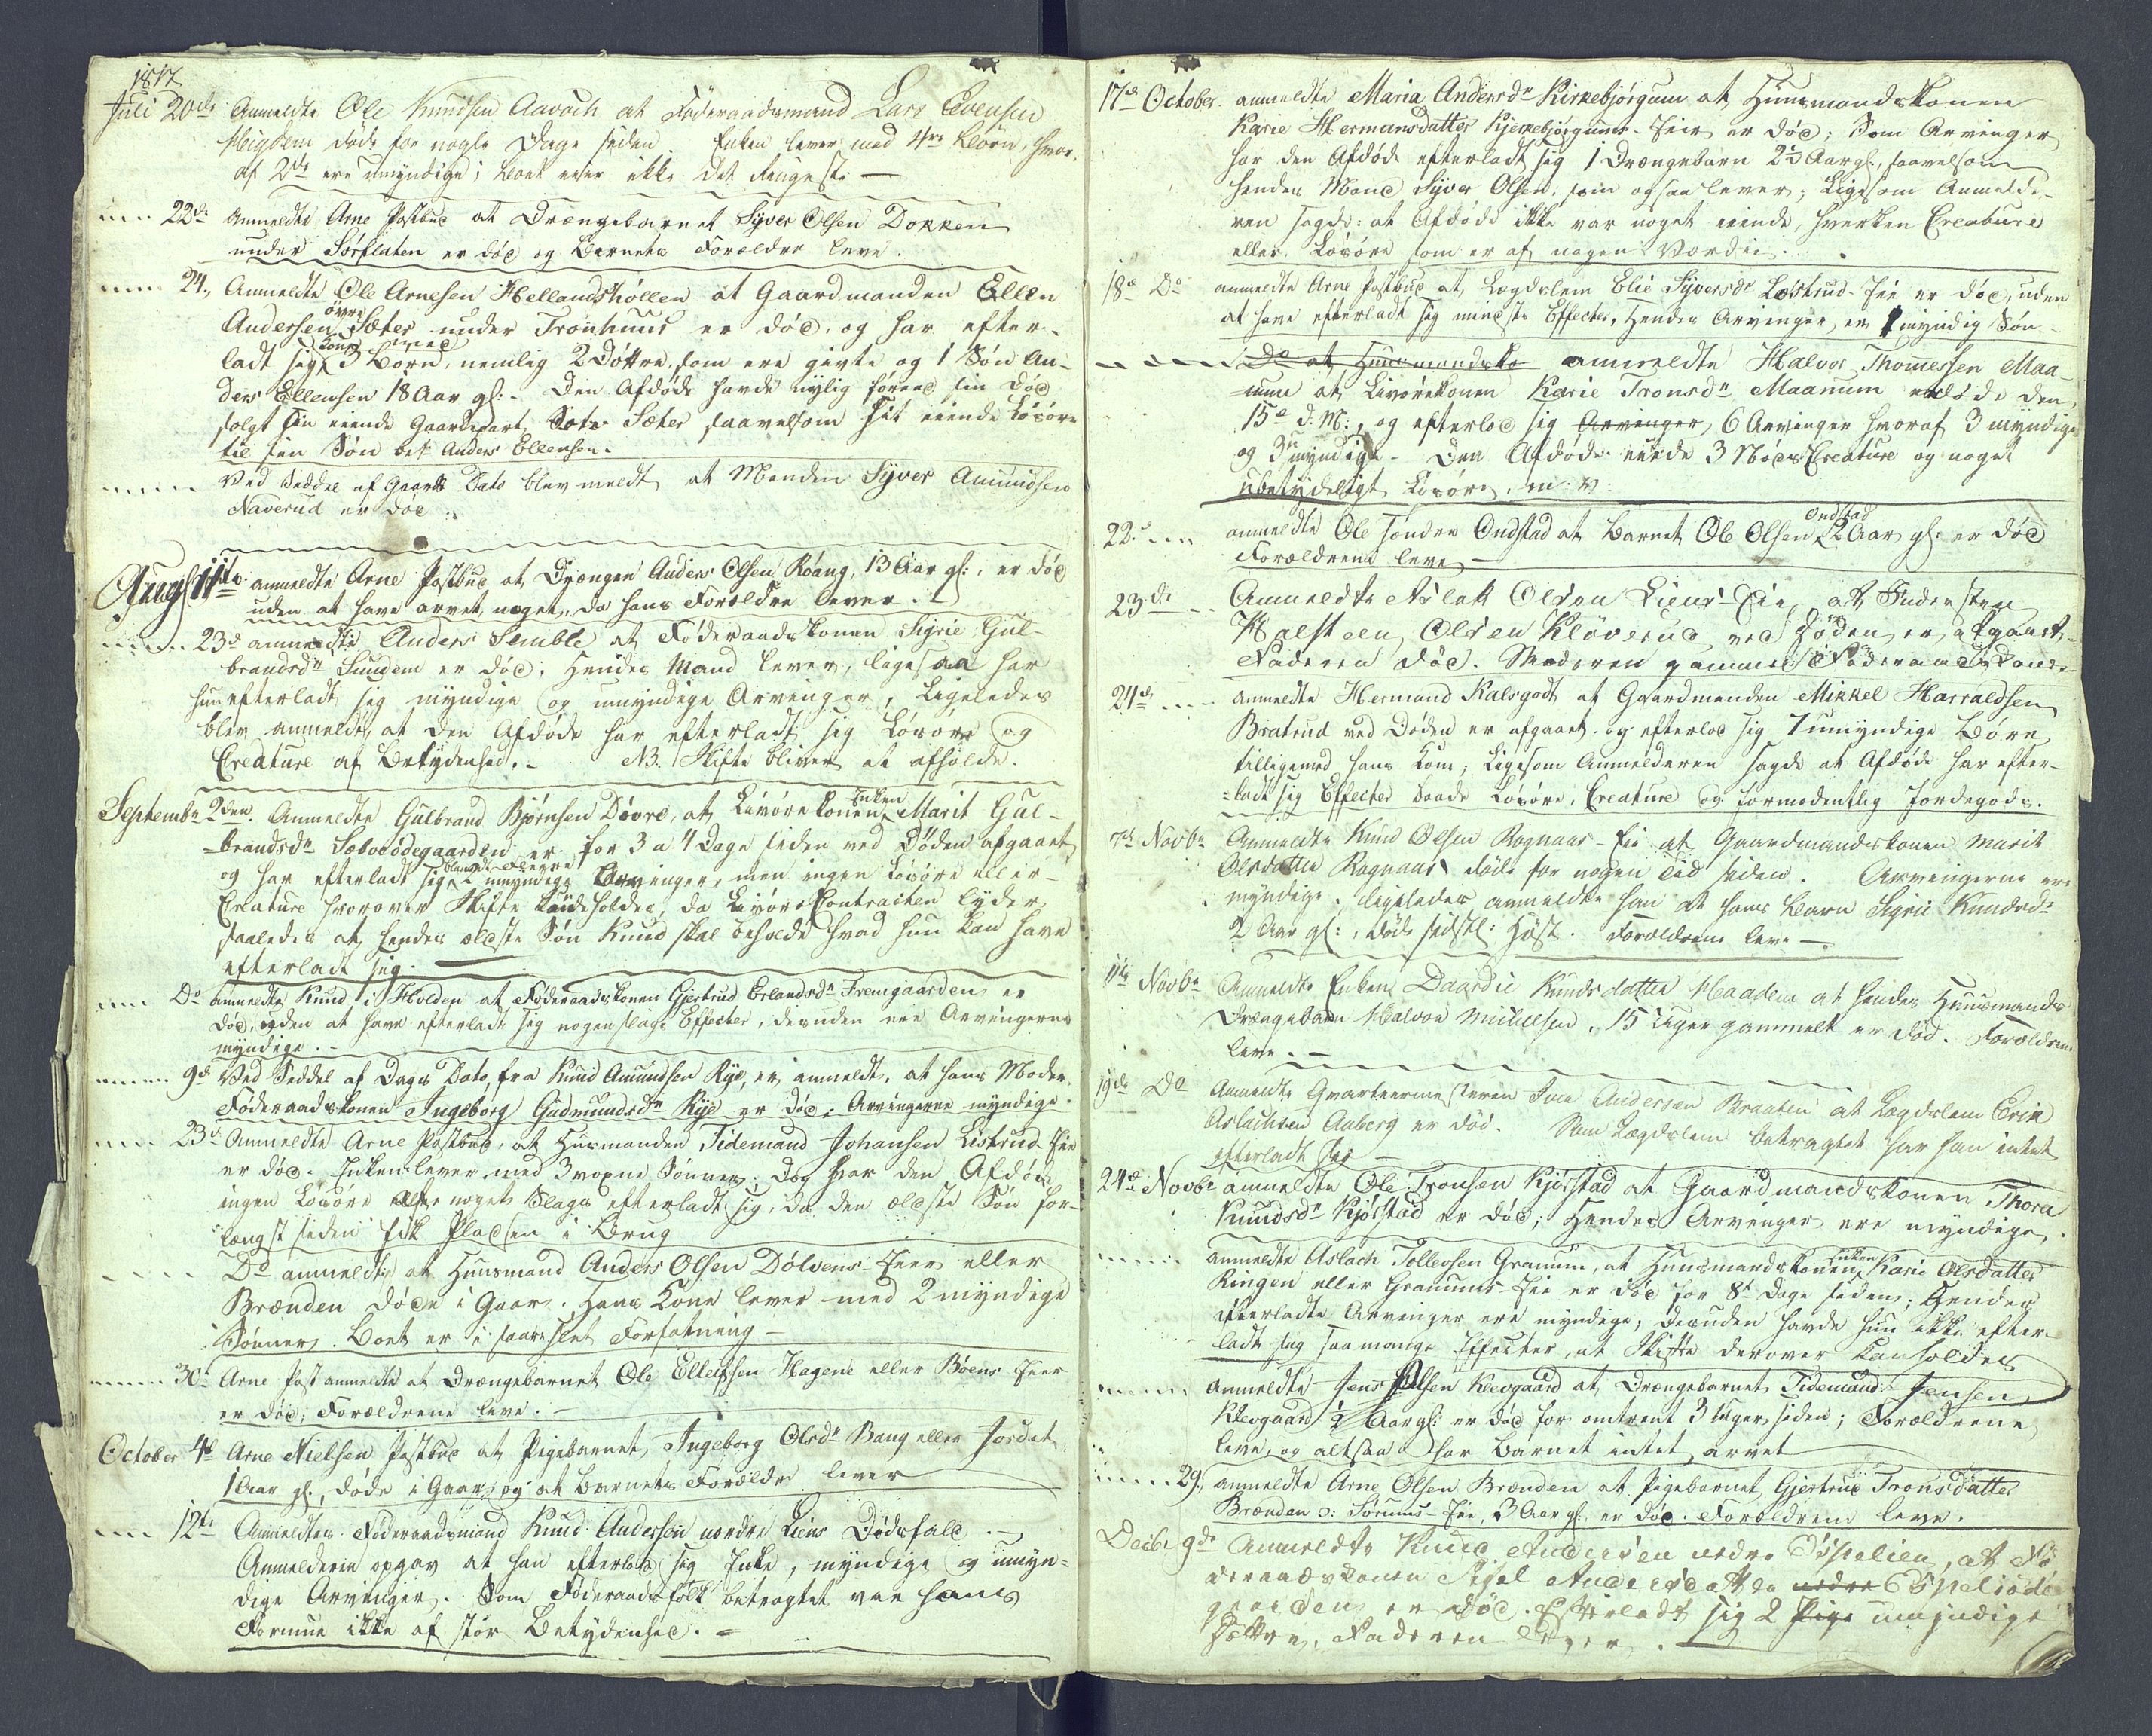 1817
Juli 20de Anmeldte Ole Knudsen Aavach at Föderaadsmand Lars Evensen
døde for nogle Dage siden. Enken lever med 4re Børn, hvor-
af 2de ere umyndige; Boet eier ikke det ringeste —
22de Anmeldte Arne Postbud at Drængebarnet Syver Olsen Dokken
under Sørflaten er død og Barnets Forældre leve.
24, Anmeldte Ole Arnesen Hellandshøllen at Gaardmanden Ellen
Andersen övre Sæter under Tronhuus er død, og har efter-
ladt sig Kone med 3 Börn, nemlig 2 Döttre, som ere givte og 1 Søn An-
ders Ellensen 18 Aar gl: - Den Afdøde havde nylig förend sin Död
solgt sin eiende Gaardepart Sæter saavelsom sit eiende Løsøre
til sin Søn bete Anders Ellensen.
Ved Seddel af Gaars Dato blev meldt at Manden Syver Amundsen
Naverud er død.
Aug 11te anmeldte Arne Postbud at Drængen Anders Olsen Röang, 13 Aar gl:, er død
uden at have arvet noget, da hans Forældre lever.
23de anmeldte Anders Semble at Föderaadskonen Sigrie Gul-
brandsdr Sundem er død. Hendes Mand lever, ligesaa har
hun efterladt sig myndige og umyndige Arvinger, Ligeledes
blev anmeldt, at den Afdøde har efterladt sig Løsøre og
Creature af Betydenhed. - NB. Skifte bliver at afholde.
Septembr 2den. Anmeldte Gulbrand Bjørnsen Døvre, at Livörekonen Enken Marit Gul-
brandsdr Sæbodødegaarden er for 3 a 4 Dage siden ved Døden afgaaet
og har efterladt sig blandt Flere 2 umyndige Arvinger, men ingen Løsøre eller
Creature hvorover Skifte kunde holdes, da Livöre Contracten lyder
saaledes at hendes ældste Søn Knud skal beholde hvad hun kan have
efterladt sig.
Do anmeldte Knud i Holden at Föderaadskonen Gjertrud Erlandsdr Fremgaarden er
død, uden at have efterladt sig nogen slags Effecter, desuden ere Arvingerne
myndige. -
9de Ved Seddel af Dags Dato, fra Knud Amundsen Rye, er anmeldt, at hans Moder
Föderaadskonen Ingeborg Gudmundsdr Rye er død. Arvingerne myndige.
23de Anmeldte Arne Postbud, at Husmanden Tidemand Johansen Listrud Eie
er død. Enken lever med 3 voxne Sønner; dog har den Afdøde
ingen Løsøre af noget Slags efterladt sig, da den ældste Søn for-
længst siden fik Pladsen i Brug
Do anmeldte at Huusmand Anders Olsen Dølvens-Eier eller
Brænden døde i Gaar. Hans Kone lever med 2 myndige
Sønner. Boet er i saare slet Forfatning -
30te Arne Post anmeldte at Drængebarnet Ole Ellefsen Hagene eller Böens Eier
er død; Forældrene leve. -
October 4de Arne Nielsen Postbud at Pigebarnet Ingeborg Olsdr Bang eller Jordet
1 Aar gl., døde i Gaar, og at Barnets Forældre lever
12te Anmeldtes Föderaadsmand Knud Andersen nordre Liens Dødsfald. -
Anmelderen opgav at han efterlod sig Enke, myndige og umyn-
dige Arvinger. Som Föderaadsfolk betragtet var hans
Formue ikke af stor Betydenhed. -
17de October. anmeldte Maria Andersdr Kirkebjørgum at Huusmandskonen
Karie Hermansdatter Kjerkebjørgums-Eier er død; Som Arvinger
har den Afdøde efterladt sig 1 Drængebarn 2½ Aar gl:, saavelsom
hendes Mand Syver Olsen, som ogsaa lever; Ligesom Anmelde-
ren sagde: at Afdøde ikke var noget eiende, hverken Creature
eller Løsøre som er af nogen Værdie.
18de Do anmeldte Arne Postbud at Lægdslem Elie Syversdr Løstrud-Eie er død, uden
at have efterladt sig mindste Effecter, Hendes Arvinger, en myndig Søn -
Do at Huusmandsko anmeldte Halvor Thomessen Maa-
num at Livörekonen Karie Tronsdr Maanum døde den
15de d: M:, og efterlod sig Arvinger, 6 Arvinger hvoraf 3 myndige
og 3 umyndige - Den Afdøde eiede 3 Nøds Creature og noget
ubetydeligt Løsøre, m: v:
22de anmeldte Ole søndre Ondstad at Barnet Ole Olsen Ondstad 2 Aar gl: er død
Forældrene leve -
23de Anmeldte Aslak Olsen Liens-Eie, at Inderst
Halsteen Olsen Kløverud ved Døden er afgaaet.
Faderen død. Moderen gammel Föderaadskone.
24de anmeldte Hermand Kalsgodt at Gaardmanden Mikkel Harraldsen
Bratrud ved Døden er afgaaet, og efterlod sig 7 umyndige Börn
tilligemed hans Kone, Ligesom Anmelderen sagde at Afdøde har efter-
ladt sig Effecter baade Løsøre, Creature og formodentlig Jordegods.
7de Novbr Anmeldte Knud Olsen Rognaas-Eie at Gaardmandskonen Marit
Olsdatter Rognaas døde for nogen Tid siden. Arvingerne ere
myndige. Ligeledes anmeldte han at hans Barn Sigrie Knudsdr
2 Aar gl:, døde sidstl: Høst. Forældrene leve —
11te Novbr Anmeldte Enken Daardie Knudsdatter Haadem at hendes Huusmands
Drængebarn Halvor Michelsen, 15 Uger gammelt er død. Forældrene
leve. -
19de Do Anmeldte Andersen Braaten at Lægdslem Erik
Aslachsen Aaberg er død. Som Lægdslem betragtet har han intet
efterladt sig -
24de Novbr anmeldte Ole Tronsen Kjørstad at Gaardmandskonen Thora
Knudsdr Kjørstad er død; Hendes Arvinger ere myndige.
anmeldte Aslach Tollefsen Granum, at Huusmandskonen Enken Karie Olsdatter
Ringen eller Granums-Eie er død for 8te Dage siden; Hendes
efterladte Arvinger ere myndige; desuden havde hun ikke efter-
ladt sig saa mange Effecter, at Skifte derover kan holdes
anmeldte Jens Olsen Klevgaard at Drængebarnet Tidemand Jensen
Klevgaard ½ Aar gl: er død for omtrent 3 Uger siden; Forældrene
leve, og altsaa har Barnet intet arvet
29, anmeldte Arne Olsen Brænden at Pigebarnet Gjertrud Tronsdatter
Brænden ɔ: Sørums-Eie, 3 Aar gl. er død. Forældrene leve.
Decbr 9de Anmeldte Knud Andersen nedre Espelien, at Fö-
deraadskonen Sigel Andersdatter nedre Espeliøde-
gaarden er død. Efterladt sig 2 umyndige
Døttre, Faderen lever.